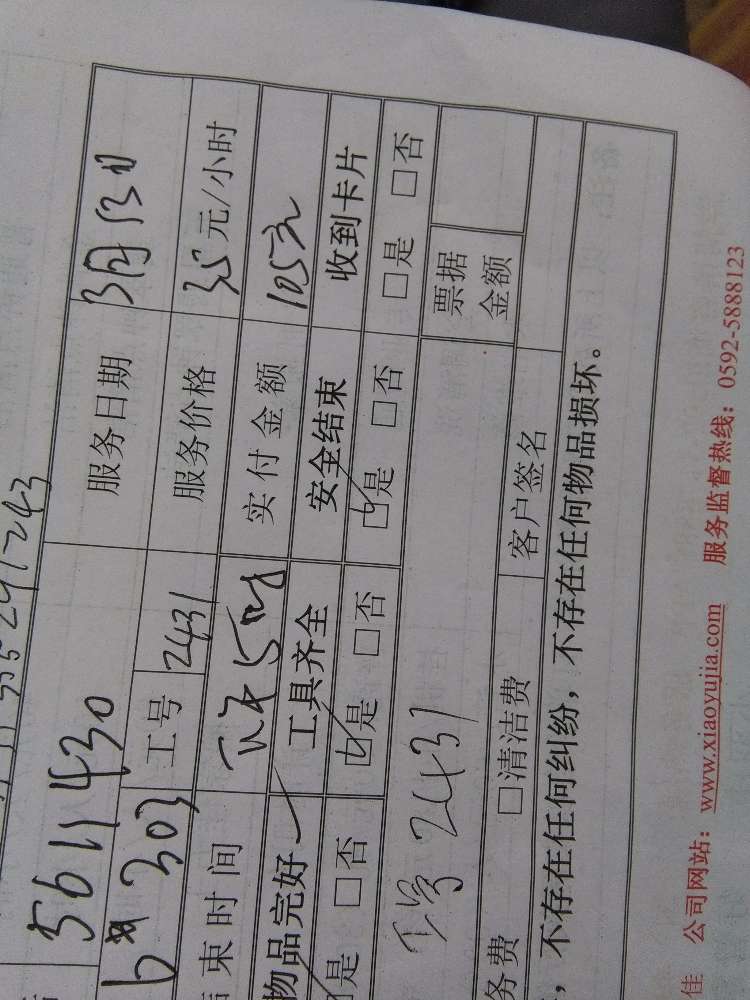 5611430 服务日期 3月13日
303 工号 2431 服务价格 35元/小时
束时间 下午5时 实付金额 105元
物品完好 工具齐全 安全结束 收到卡片
是 □否 □是 □否 □是 □否 □是 □否
工号 2431 票据金额
务费 □清洁费 客户签名
，不存在任何纠纷，不存在任何物品损坏。
佳 公司网站：www.xiaoyujia.com 服务监督热线：0592-5888123